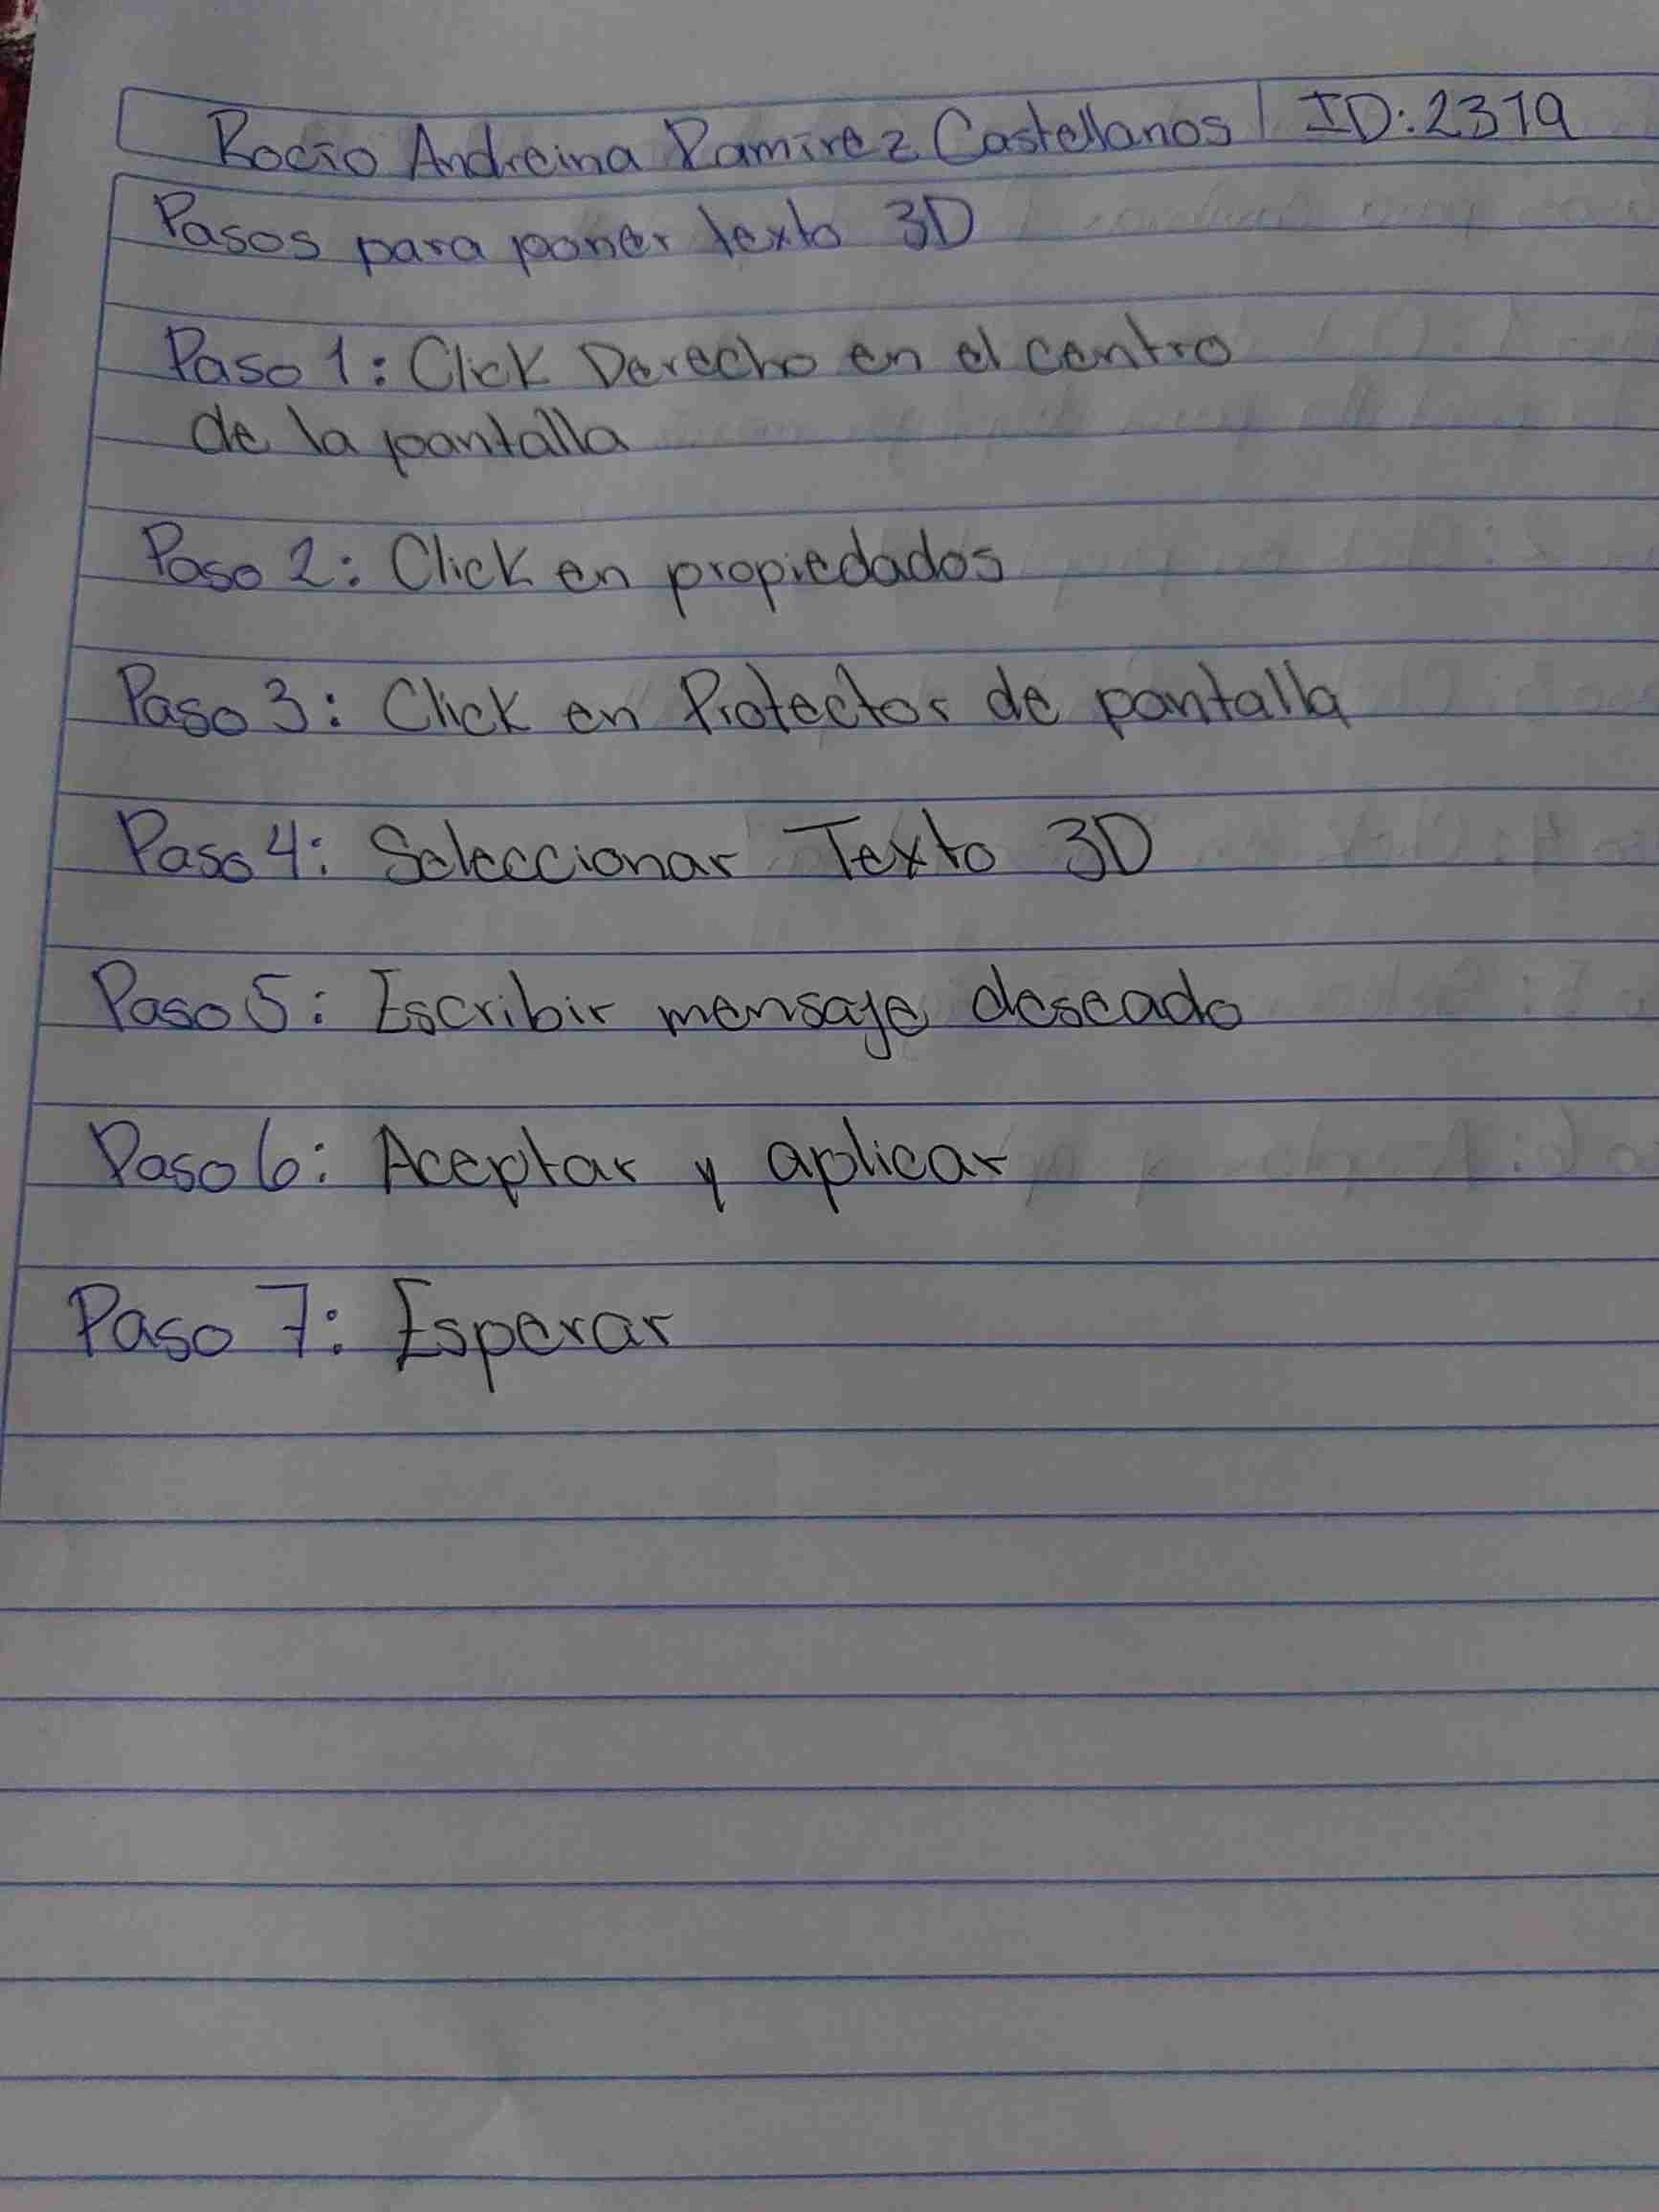 Rocío Andreina Ramírez Castellanos ID: 2319
Pasos para poner texto 3D
Paso 1: Click Derecho en el centro
de la pantalla
Paso 2: Click en propiedades
Paso 3: Click en Protector de pantalla
Paso 4: Seleccionar Texto 3D
Paso 5: Escribir mensaje deseado
Paso 6: Aceptar y aplicar
Paso 7: Esperar